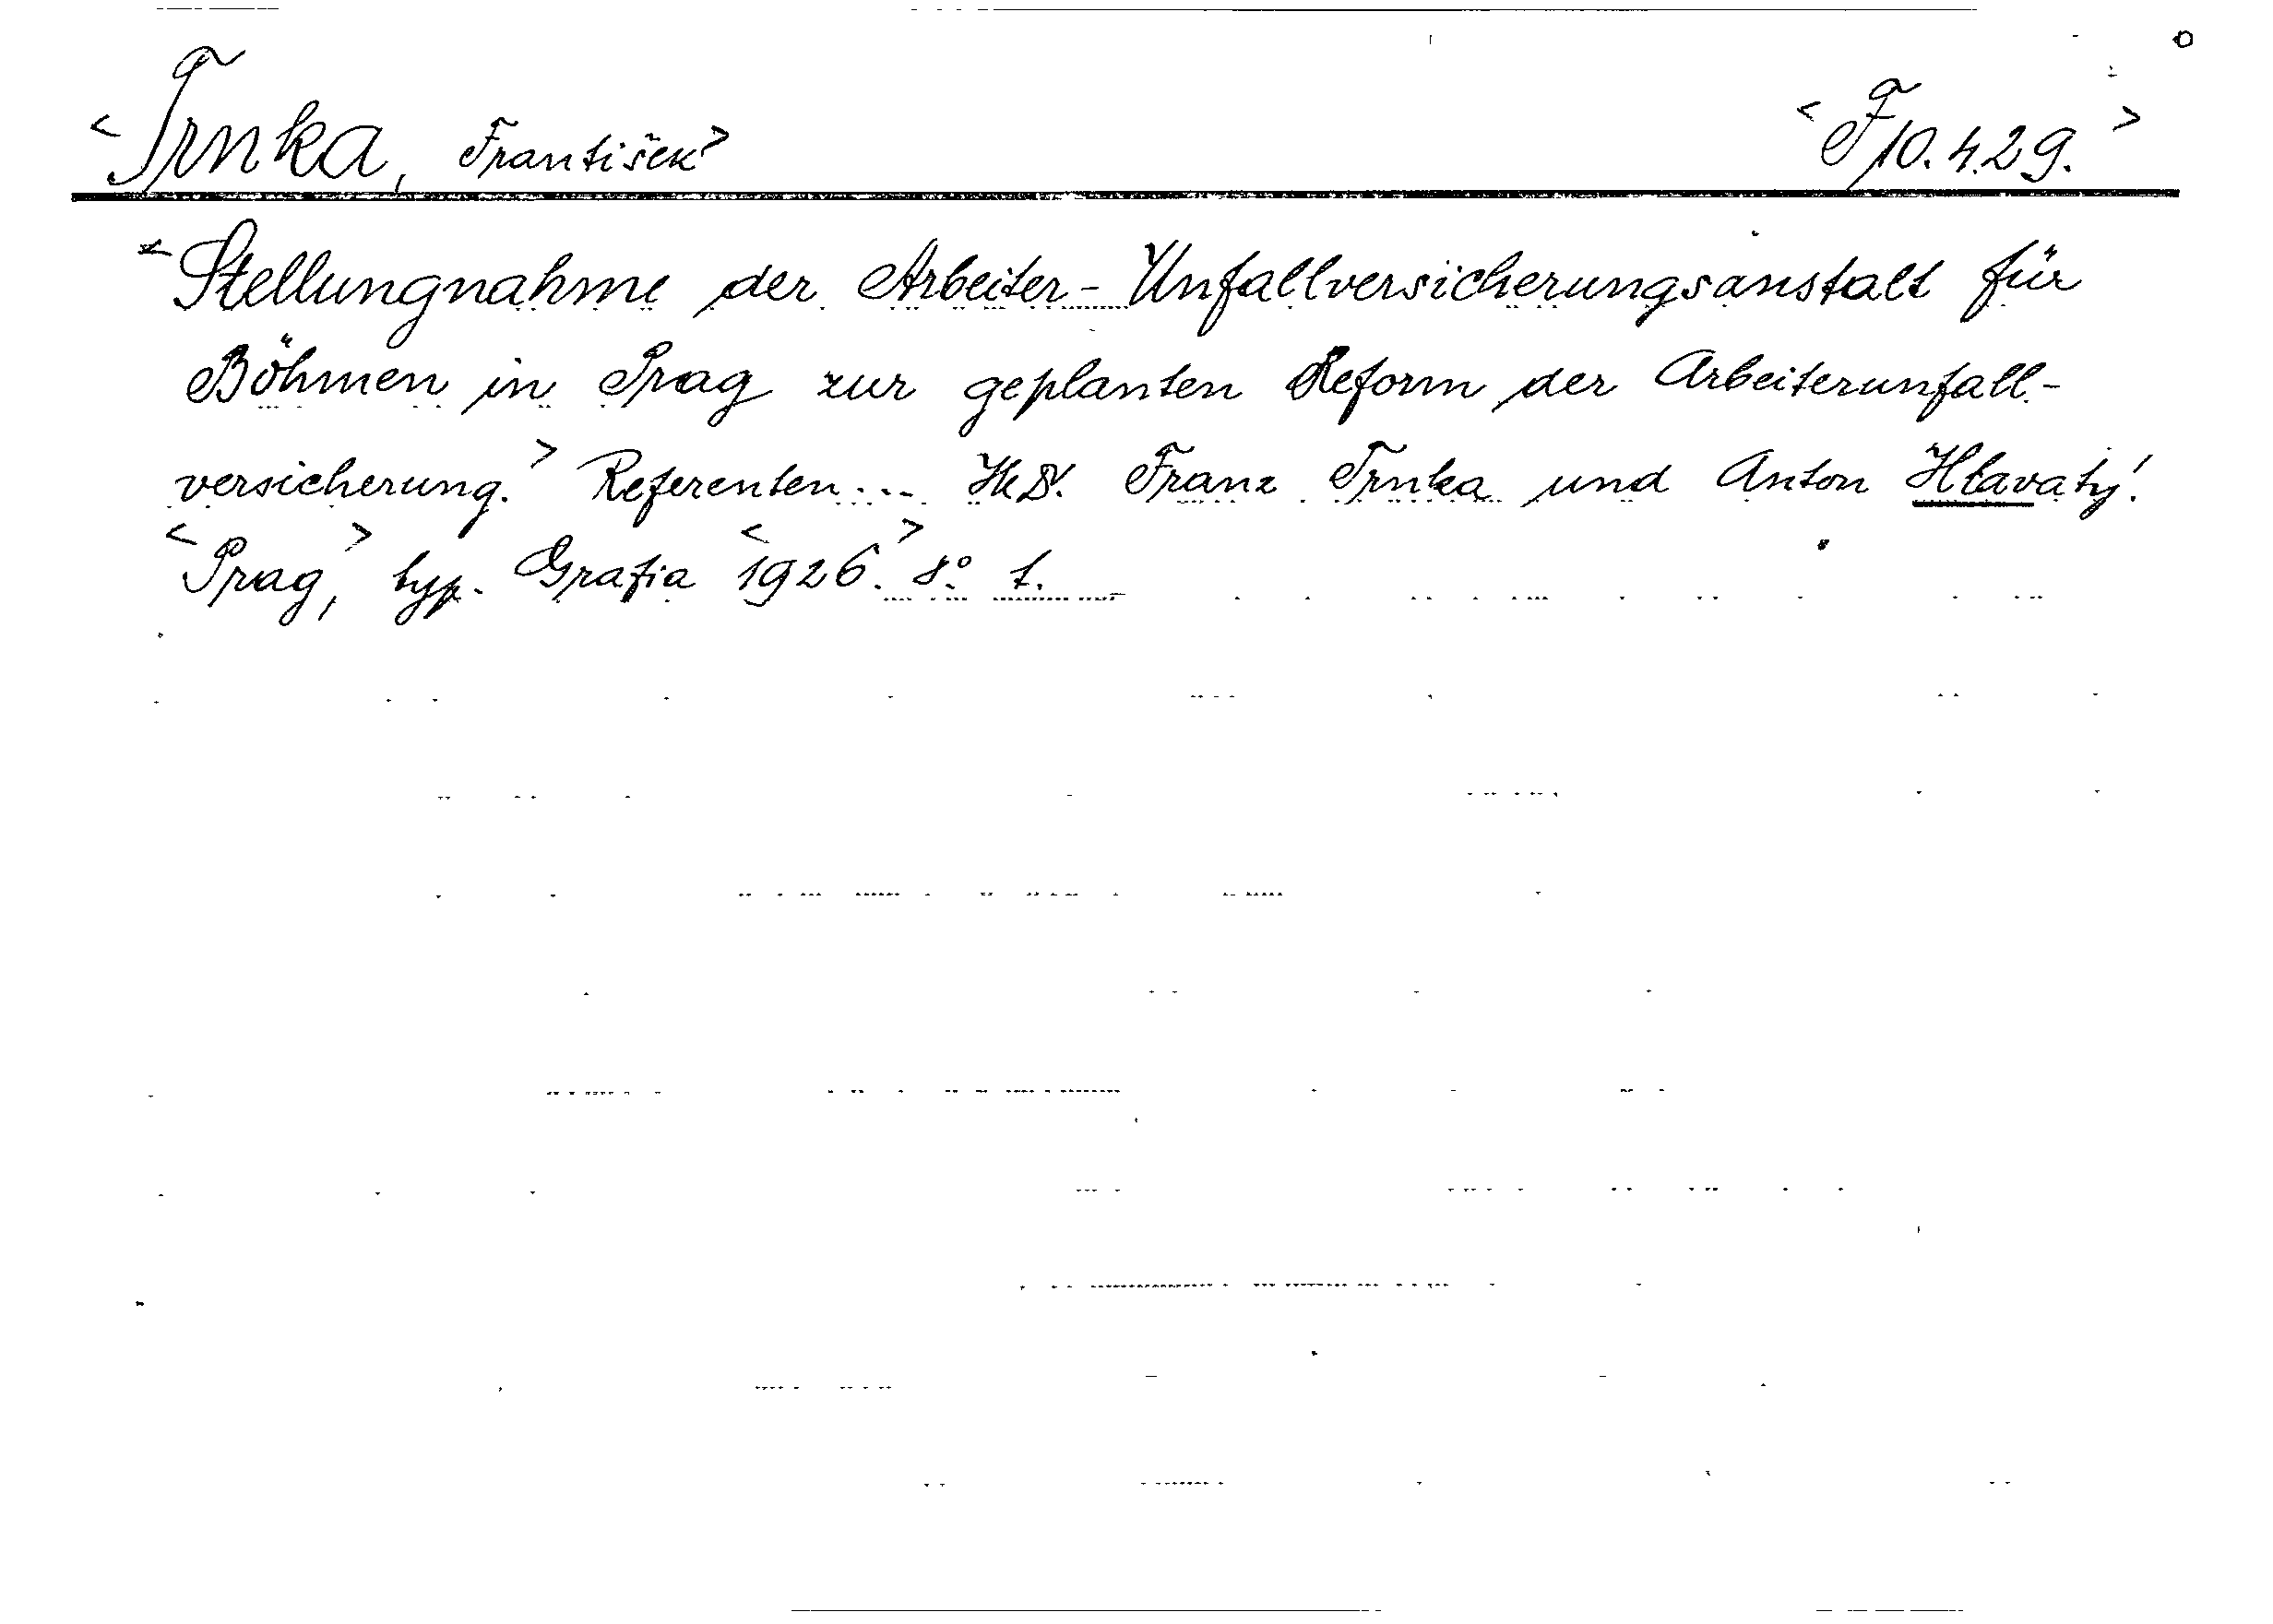 <Trnka, František> <F 10.429.>
<Stellungnahme der Arbeiter-Unfallversicherungsanstalt für
Böhmen in Prag zur geplanten Reform der Arbeiterunfall-
versicherung.> Referenten... Franz Trnka und Anton Hlavatý.
<Prag,> typ. Grafia <1926.> 8° 1.